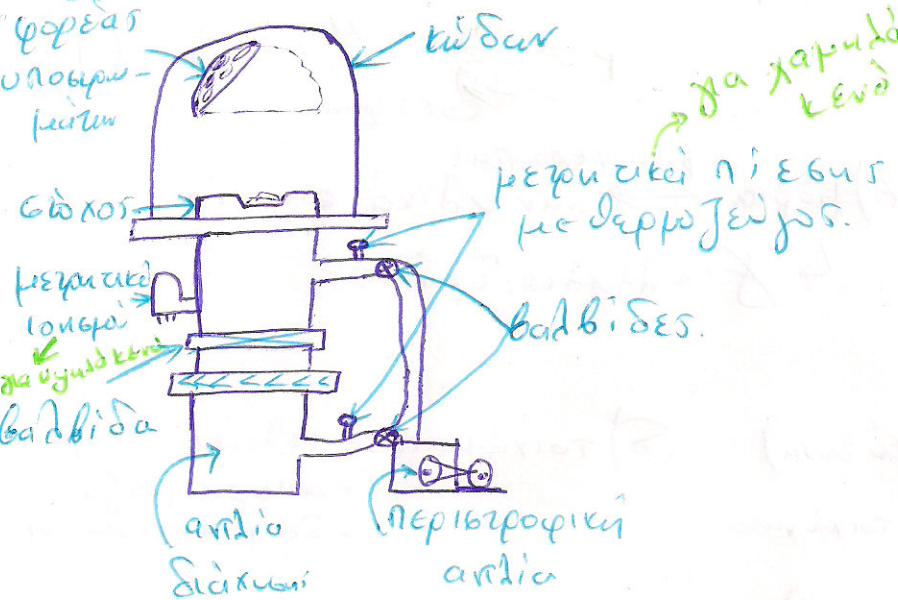 φορέας
υποστρω-
μάτων
κώδων
για χαμηλό
κενό
στόχος
μετρητικοί πίεσης
με θερμοζεύγος.
μετρητικό
ιονισμού
για υψηλό κενό
βαλβίδες.
βαλβίδα
αντλία
διάχυσης
περιστροφική
αντλία